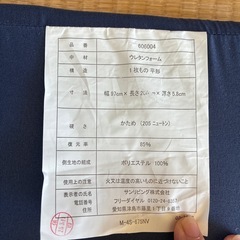 品番 606004
中材 ウレタンフォーム
構造 1枚もの 平形
寸法 幅97cm× 長さ20 × 厚さ5.8cm
硬さ かため (205 ニュートン)
復元率 85%
側生地の組成 ポリエステル 100%
使用上の注意 火又は温度の高いものに近づけないこと
表示者の氏名 サンリビング株式会社
フリーダイヤル 0120-24-
愛知県津島市
M-45-670NV